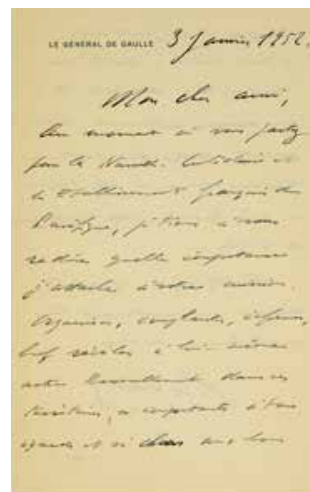 LE GÉNÉRAL DE GAULLE 3 Janvier 1952.
Mon cher ami,
Au moment où vous partez
pour la Nouvelle Calédonie et
les Etablissements français du
Pacifique, je tiens à vous
redire quelle importance
j'attache à votre mission.
Organiser,
bref, à lui-même
notre Rassemblement dans ces
territoires, si importants à tous
égards et si chers aux bons